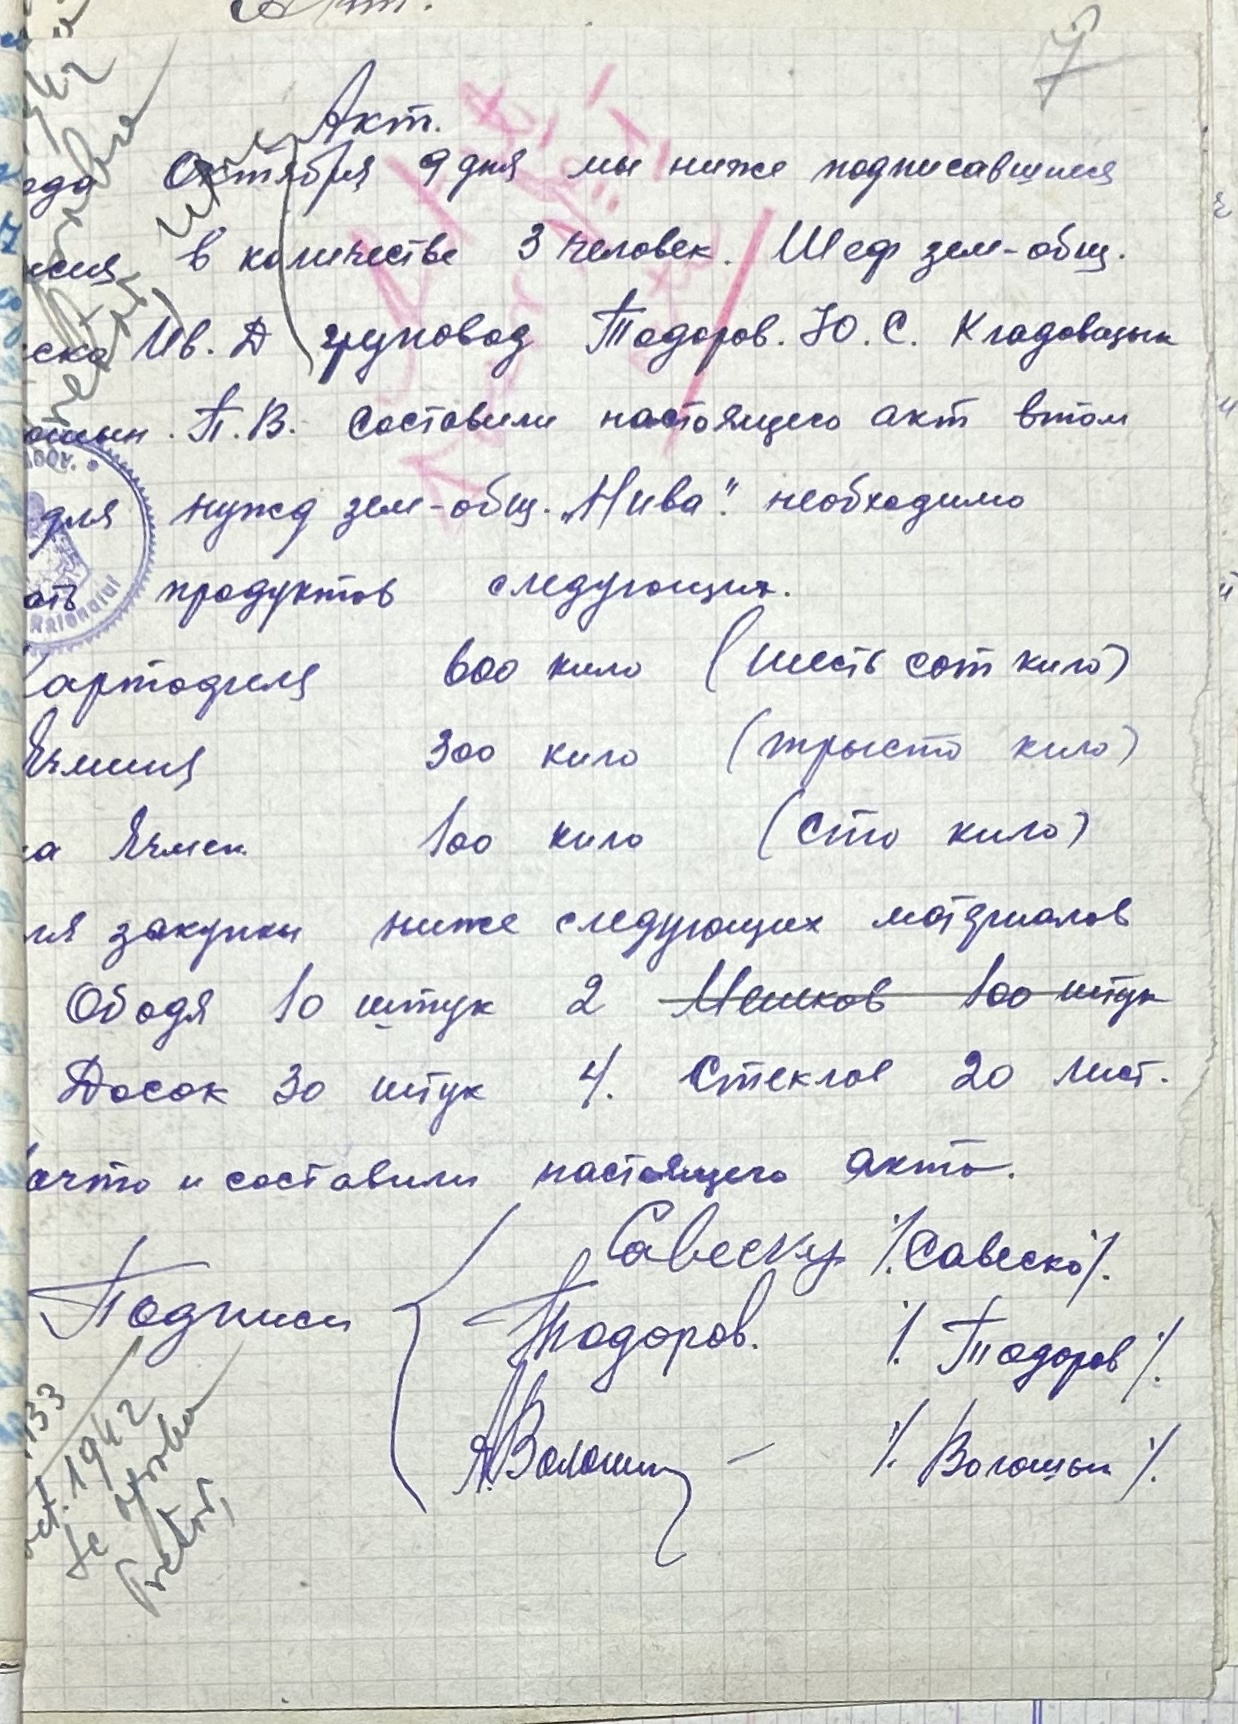 Акт.
7
Акт.
ода Октября 9 дня мы ниже подписавшиеся
в количестве 3 человек. Шеф зем-общ.
ско Ив. Д груповод Тодоров. Ю. С. Кладовщык
П. В. составили настоящего акт втом
для нужд зем-общ. „Нива". необходимо
ать продуктов следующих.
артофиля 600 кило (шесть сот кило)
Ячминя 300 кило (трыста кило)
на Ячмен 100 кило (сто кило)
ля закупки ниже следующих матэриалов
Ободя 10 штук 2 Мешков 100 штук
Досок 30 штук 4. Стеклов 20 лист.
ачто и составили настоящего акта.
Подписи Савеску /.Савеско/.
Тодоров. /. Тодоров /.
А.Волошин – /. Волошын /.
133
oct. 1942
Se aproba
Pretor,